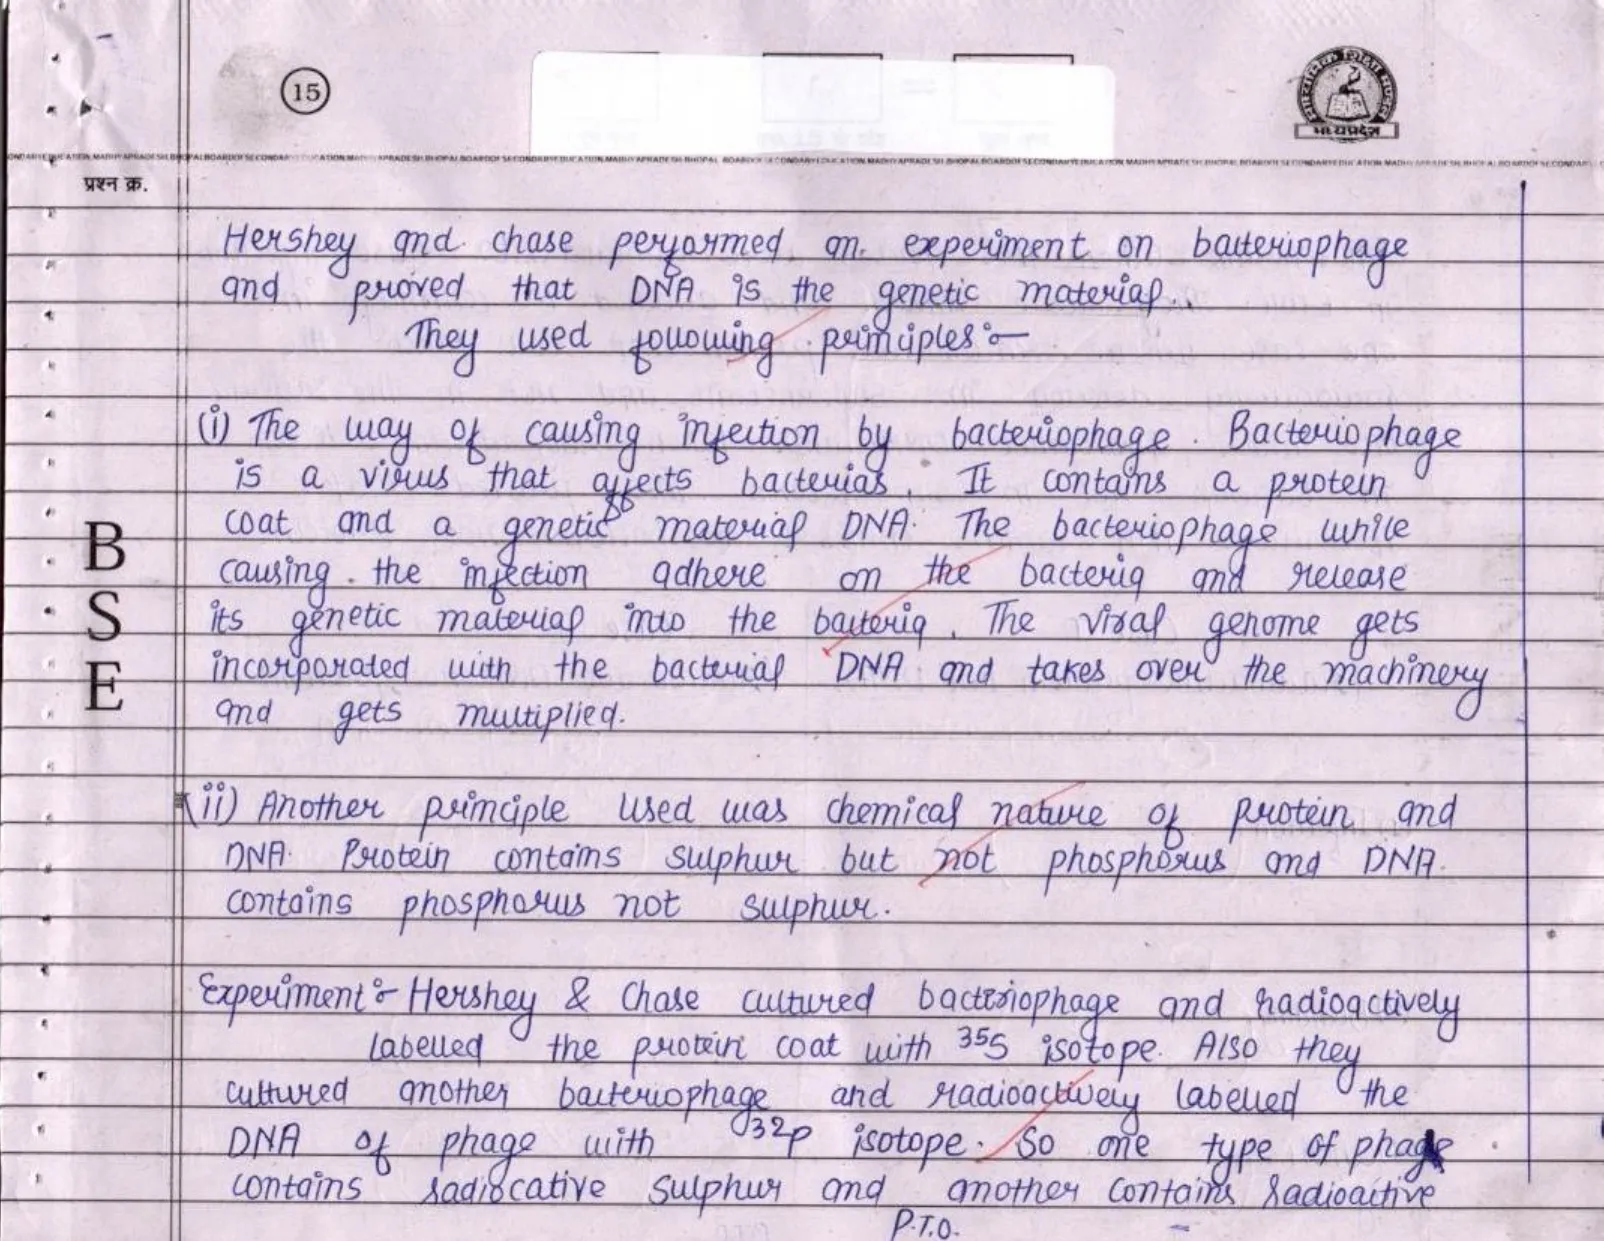 15
मध्यप्रदेश
प्रश्न क्र.
Hershey and chase performed an experiment on bacteriophage
and proved that DNA is the genetic material.
They used following principles :-
(i) The way of causing infection by bacteriophage. Bacteriophage
is a virus that affects bacterias. It contains a protein
coat and a genetic material DNA. The bacteriophage while
causing the infection adhere on the bacteria and release
its genetic material into the bacteria. The viral genome gets
incorporated with the bacterial DNA and takes over the machinery
and gets multiplied.
(ii) Another principle used was chemical nature of protein and
DNA. Protein contains sulphur but not phosphorus and DNA.
contains phosphorus not sulphur.
Experiment :- Hershey & Chase cultured bacteriophage and radioactively
labelled the protein coat with 35S isotope. Also they
cultured another bacteriophage and radioactively labelled the
DNA of phage with 32p isotope. So one type of phage
contains radiocative sulphur and another contains radioactive
P.T.O.
B
S
E